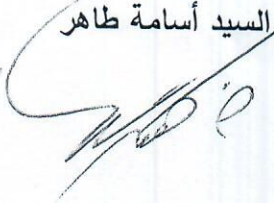 السيد أسامة طاهر